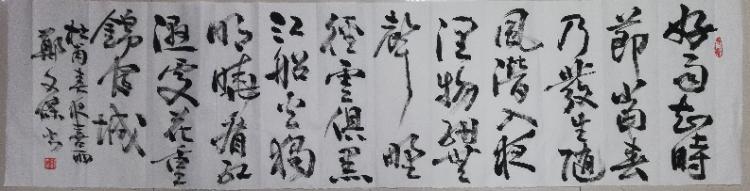 好雨知時
節當春
乃發生隨
風潛入夜
潤物細無
聲野
徑雲俱黑
江船火獨
明曉看紅
濕處花重
錦官城
杜甫春夜喜雨
鄭文